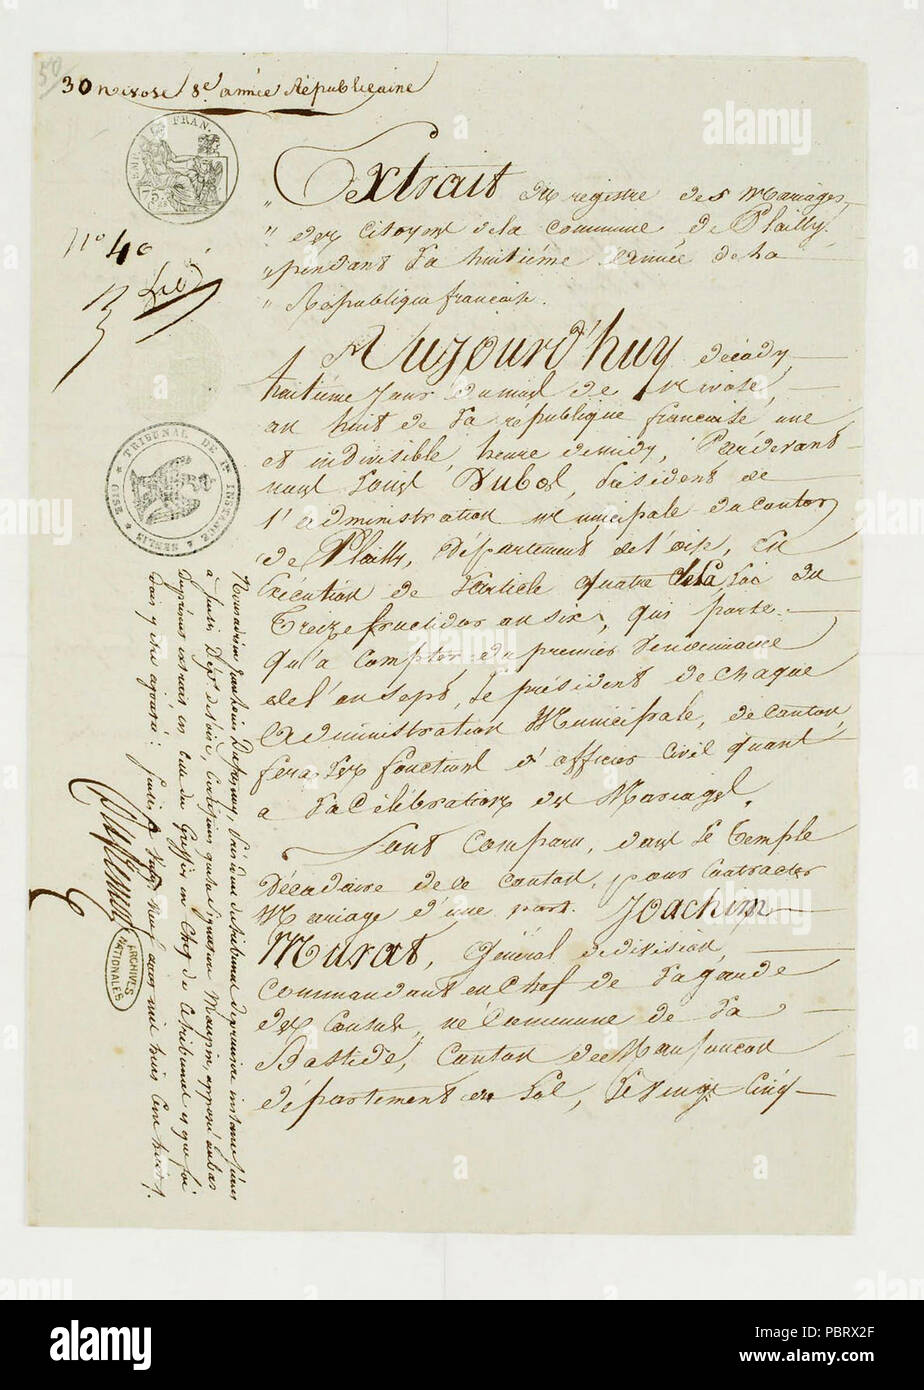 50
30 nivose 8e année Républicaine
EMPIRE FRAN.
N° 40
Extrait du registre des Mariages
" des citoyens de la commune de Plailly.
" pendant la huitiéme année de la
" République francaise.
Aujourd'huy décady,
huitiéme jour du mois de nivose,
an huit de la république francaise une
et indivisible, heure de midy, Pardevant
nous Louis Dubos, Président de
l'administration municipale du canton
de Plailly, département de l'oise, En
Exécution de l'article quatre de la Loi du
Treize fructidor an six, qui porte
qu'a compter du premier vendemiaire
de l'an sept, le président de chaque
administration Municipale, de canton,
fera les fonctions d'officier civil quant
a la Célébration des Mariages.
Sont comparu, dans le temple
Décadaire de ce canton, pour contracter
Mariage d'une part. Joachim
Murat, Général de division,
commandant en chef de la garde
des Consuls, né Commune de la
Bastide, canton de Monfaucon
département du Lot, le vingt cinq
TRIBUNAL DE 1re INSTANCE A SENLIS * OISE *
président du tribunal de premiere instance séant
à Senlis Dépt de l'oise, Certifions que la signature Mougin, apposée au bas
du présent extrait est celle du Greffier en Chef de ce tribunal et que foi
doit y être ajoutée : Senlis le vingt neuf mil huit cent
ARCHIVES
NATIONALES
alamy
a
alamy
PBRX2F
www.alamy.com